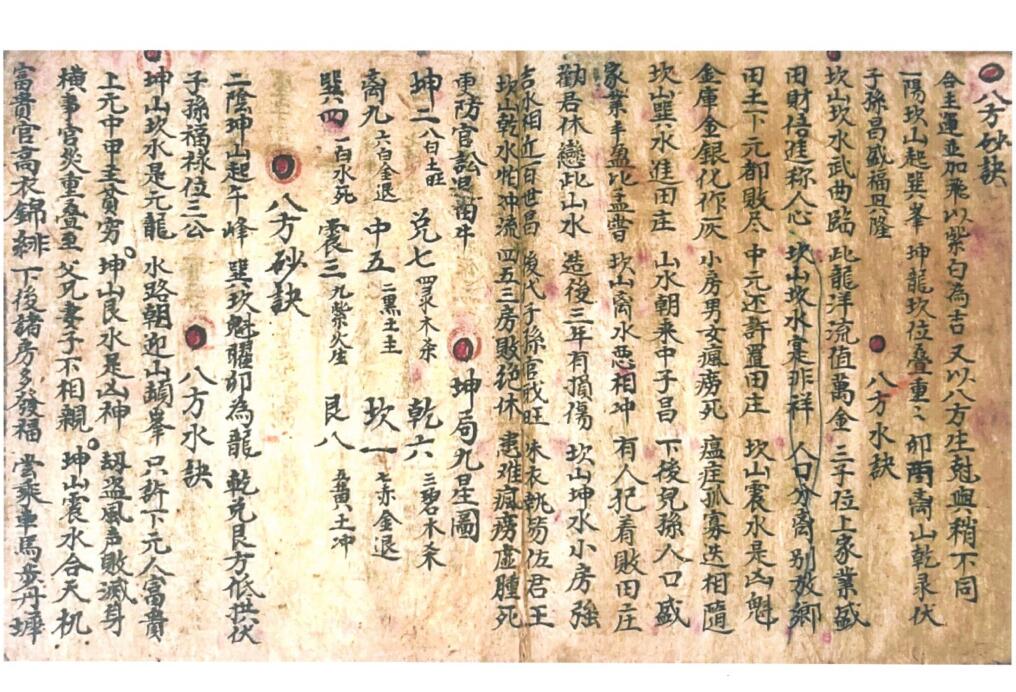 八方砂訣
合主運並加乘以紫白為吉 又以八方生尅與稍不同
一陽坎山起巽峯 坤龍坎位叠重〻 卯酉壽山乾彔伏
子孫昌盛福囬隆 八方水訣
坎山坎水武曲臨 此龍洋流值萬金 三子位上家業盛
田財倍進称人心 坎山坎水寔非祥 人口分离別故鄉
田土下元都敗尽 中元还許置田庄 坎山震水是凶魁
金庫金銀化作灰 小房男女瘋癆死 瘟症孤寡迭相隨
坎山巽水進田庄 山水朝乘中子昌 下後兒孫人口盛
家業丰盈比孟甞 坎山离水惡相冲 有人犯着敗田庄
勸君休戀此山水 造後三年有損傷 坎山坤水小房強
吉水相近百世昌 後代子孫官我旺 朱衣執笏佐君王
坎山乾水怕冲流 四五三房敗絕休 患难瘋癆虛腫死
更防官訟退菌牛 坤局九星圖
坤二 八白土旺 兑七 四彔木杀 乾六 三碧木杀
离九 六白金退 中五 二黑土土 坎一 七赤金退
巽四 一白水死 震三 九紫火生 艮八 五黄土冲
八方砂訣
二陰坤山起午峰 巽坎魁曜卯為龍 乾兄艮方低拱伏
子孫福禄位三公 八方水訣
坤山坎水是元龍 水路朝迎山頭峯 只許下元人富貴
上元中甲主貧穷 坤山艮水是凶神 刼盗風声敗滅身
横事官災重叠至 父兄妻子不相親 坤山震水合天机
富貴官高衣錦緋 下後諸房多發福 當乘車馬步丹墀